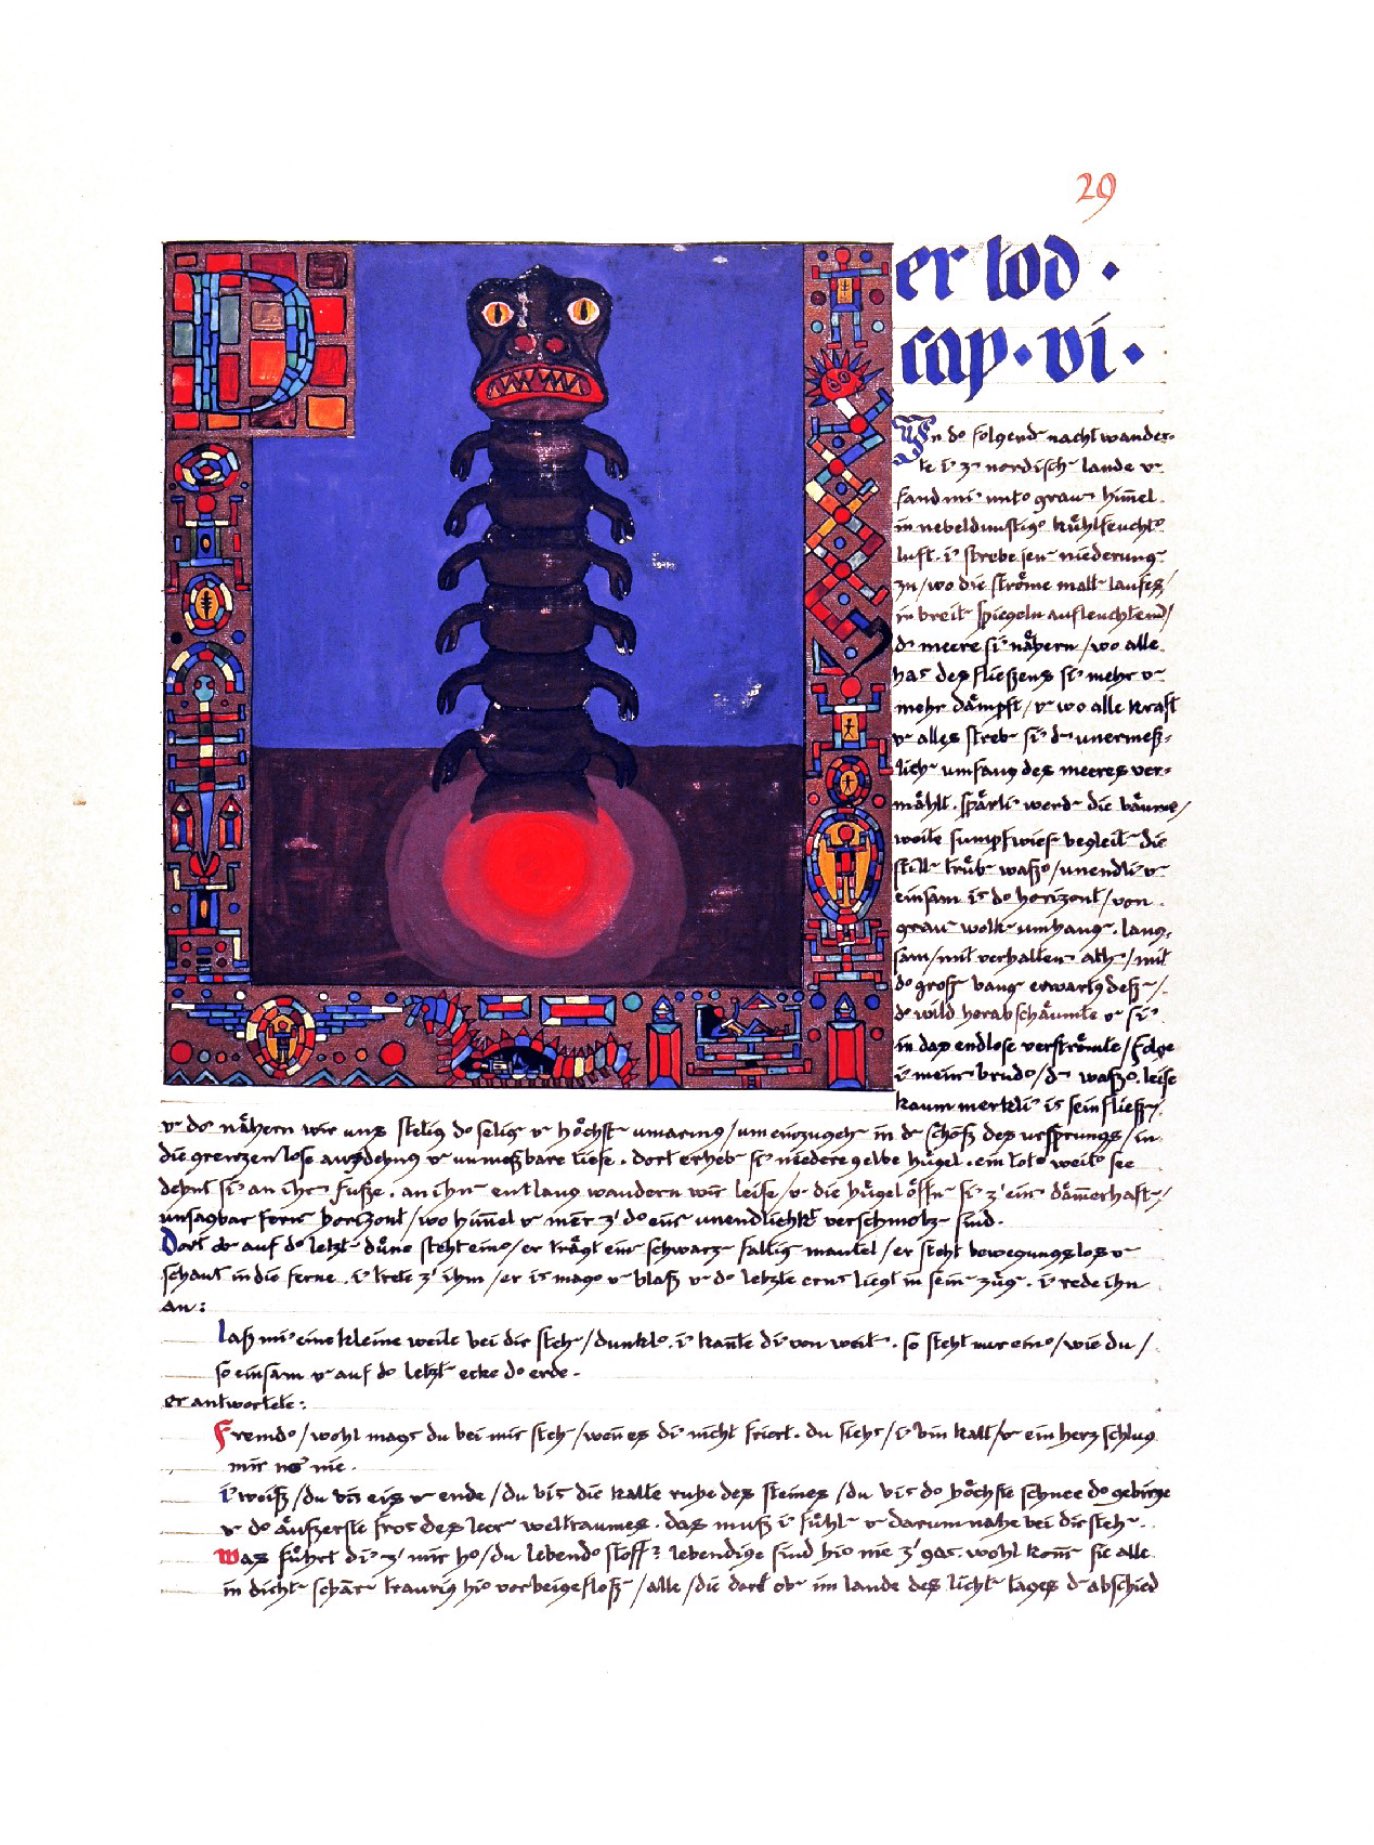 29
D
er tod ·
cap · vi ·
In d° folgend~ nacht wander=
te i' z~ nordisch~ lande v~
fand mi' unt° grau~ him̄el
in nebeldunstig° kühlfeucht°
luft. i' strebe jen~ niederung~
zu / wo die ströme matt~ laufes /
in breit~ spiegeln aufleuchtend /
d~ meere si' nähern / wo alle
has des fließens si' mehr v~
mehr dämpft / v~ wo alle kraft
v~ alles streb~ si' d~ unermeß=
lich~ umfang des meeres ver=
mählt. spärli' werd~ die bäume /
weite sumpfwies~ begleit~ die
still~ trüb~ waß° / unendli' v~
einsam is d° horizont / von
grau~ wolk~ umhang~. lang=
sam / mit verhalten~ ath~ / mit
d° groß~ bang~ erwartg deß~ /
d° wild herabschäumte v~ si'
in das endlose verströmte / folge
i' mein~ brud° / d~ waß°. leise
kaum merkli' is sein fließ~ /
v~ do' nähern wir uns stetig d° selig~ v~ höchst~ umarmg / um einzugeh~ in d~ schoß des ursprungs / in
die grenzenlose ausdehng v~ unmeßbare tiefe. dort erheb~ si' niedere gelbe hügel. ein tot° weit° see
dehnt si' an ihr~ fuße. an ihn~ entlang wandern wir leise / v~ die hügel öffn~ si' z' ein~ däm̄erhaft~ /
unsagbar fern~ horizont / wo him̄el v~ meer z' d° ein~ unendlichkt verschmolz~ sind.
Dort ob~ auf d° letzt~ düne steht ein° / er trägt ein~ schwarz~ faltig~ mantel / er steht bewegungslos v~
schaut in die ferne. i' trete z' ihm / er is mag° v~ blaß v~ d° letzte ernst liegt in sein~ züg~. i' rede ihn
an:
Laß mi' eine kleine weile bei dir steh~ / dunkl°. i' kan̄te di' von weit~. so steht nur ein° / wie du /
so einsam v~ auf d° letzt~ ecke d° erde.
er antwortete:
Fremd° / wohl mags du bei mir steh~ / wen̄ es di' nicht friert. du siehs / i' bin kalt / v~ ein herz schlug
mir no' nie.
i' weiß / du bis eis v~ ende / du bis die kalte ruhe des steines / du bis d° höchste schnee d° gebirge
v~ d° äußerste fros des leer~ weltraumes. das muß i' fühl~ v~ darum nahe bei dir steh~.
Was führt di' z' mir h° / du lebend° stoff? lebendige sind hi° nie z' gas. wohl kom̄~ sie alle
in dicht~ schar~ traurig hi° vorbeigefloß~ / alle / die dort ob~ im lande des licht~ tages d~ abschied